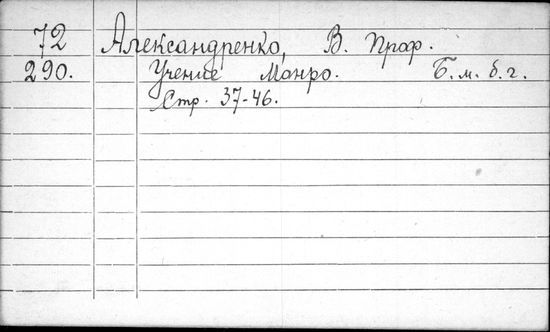 72 Александренко, В. Проф.
290. Учение Монро. Б. м. б. г.
Стр. 37-46.